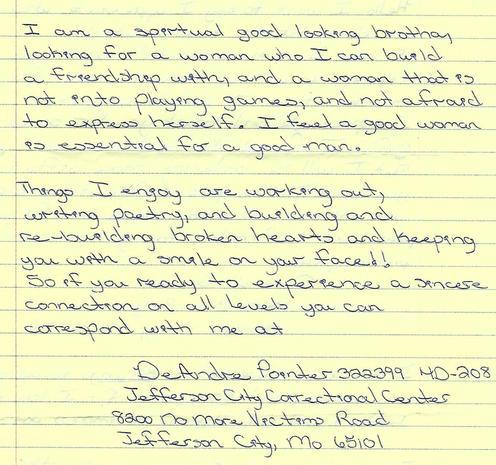 I am a spiritual good looking brotha,
looking for a woman who I can build
a friendship with, and a woman that is
not into playing games, and not afraid
to express herself. I feel a good woman
is essential for a good man.
Things I enjoy are working out,
writing poetry, and building and
re-building broken hearts and keeping
you with a smile on your face!!
So if you ready to experience a sincere
connection on all levels you can
correspond with me at
DeAndre Pointer 322399 HD-208
Jefferson City Correctional Center
8200 No More Victims Road
Jefferson City, Mo 65101